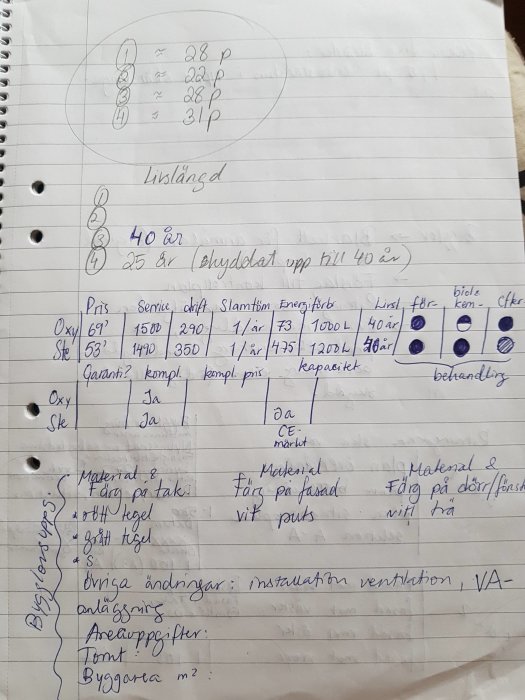 ① ≈ 28 p
② ≈ 22 p
③ ≈ 28 p
④ ≈ 31 p
Livslängd
①
②
③ 40 år
④ 25 år (skyddat upp till 40 år)
Pris Service drift Slamtöm Energiförb Livsl för- biol& kem- Efter
Oxy 69' 1500 290 1/år 73 1000L 40 år
Ste 53' 1490 350 1/år 475 1200L år
behandling
Garanti? kompl. kompl. pris kapacitet
Oxy Ja
Ste Ja Ja
CE-
märkt
Bygglovsuppg.
Material & Material Material &
Färg på tak: Färg på fasad Färg på dörr/fönst
* rött tegel vit puts vitt trä
* grått tegel
* S
Övriga ändringar: installation ventilation, VA-
anläggning
Areauppgifter:
Tomt:
Byggarea m²: